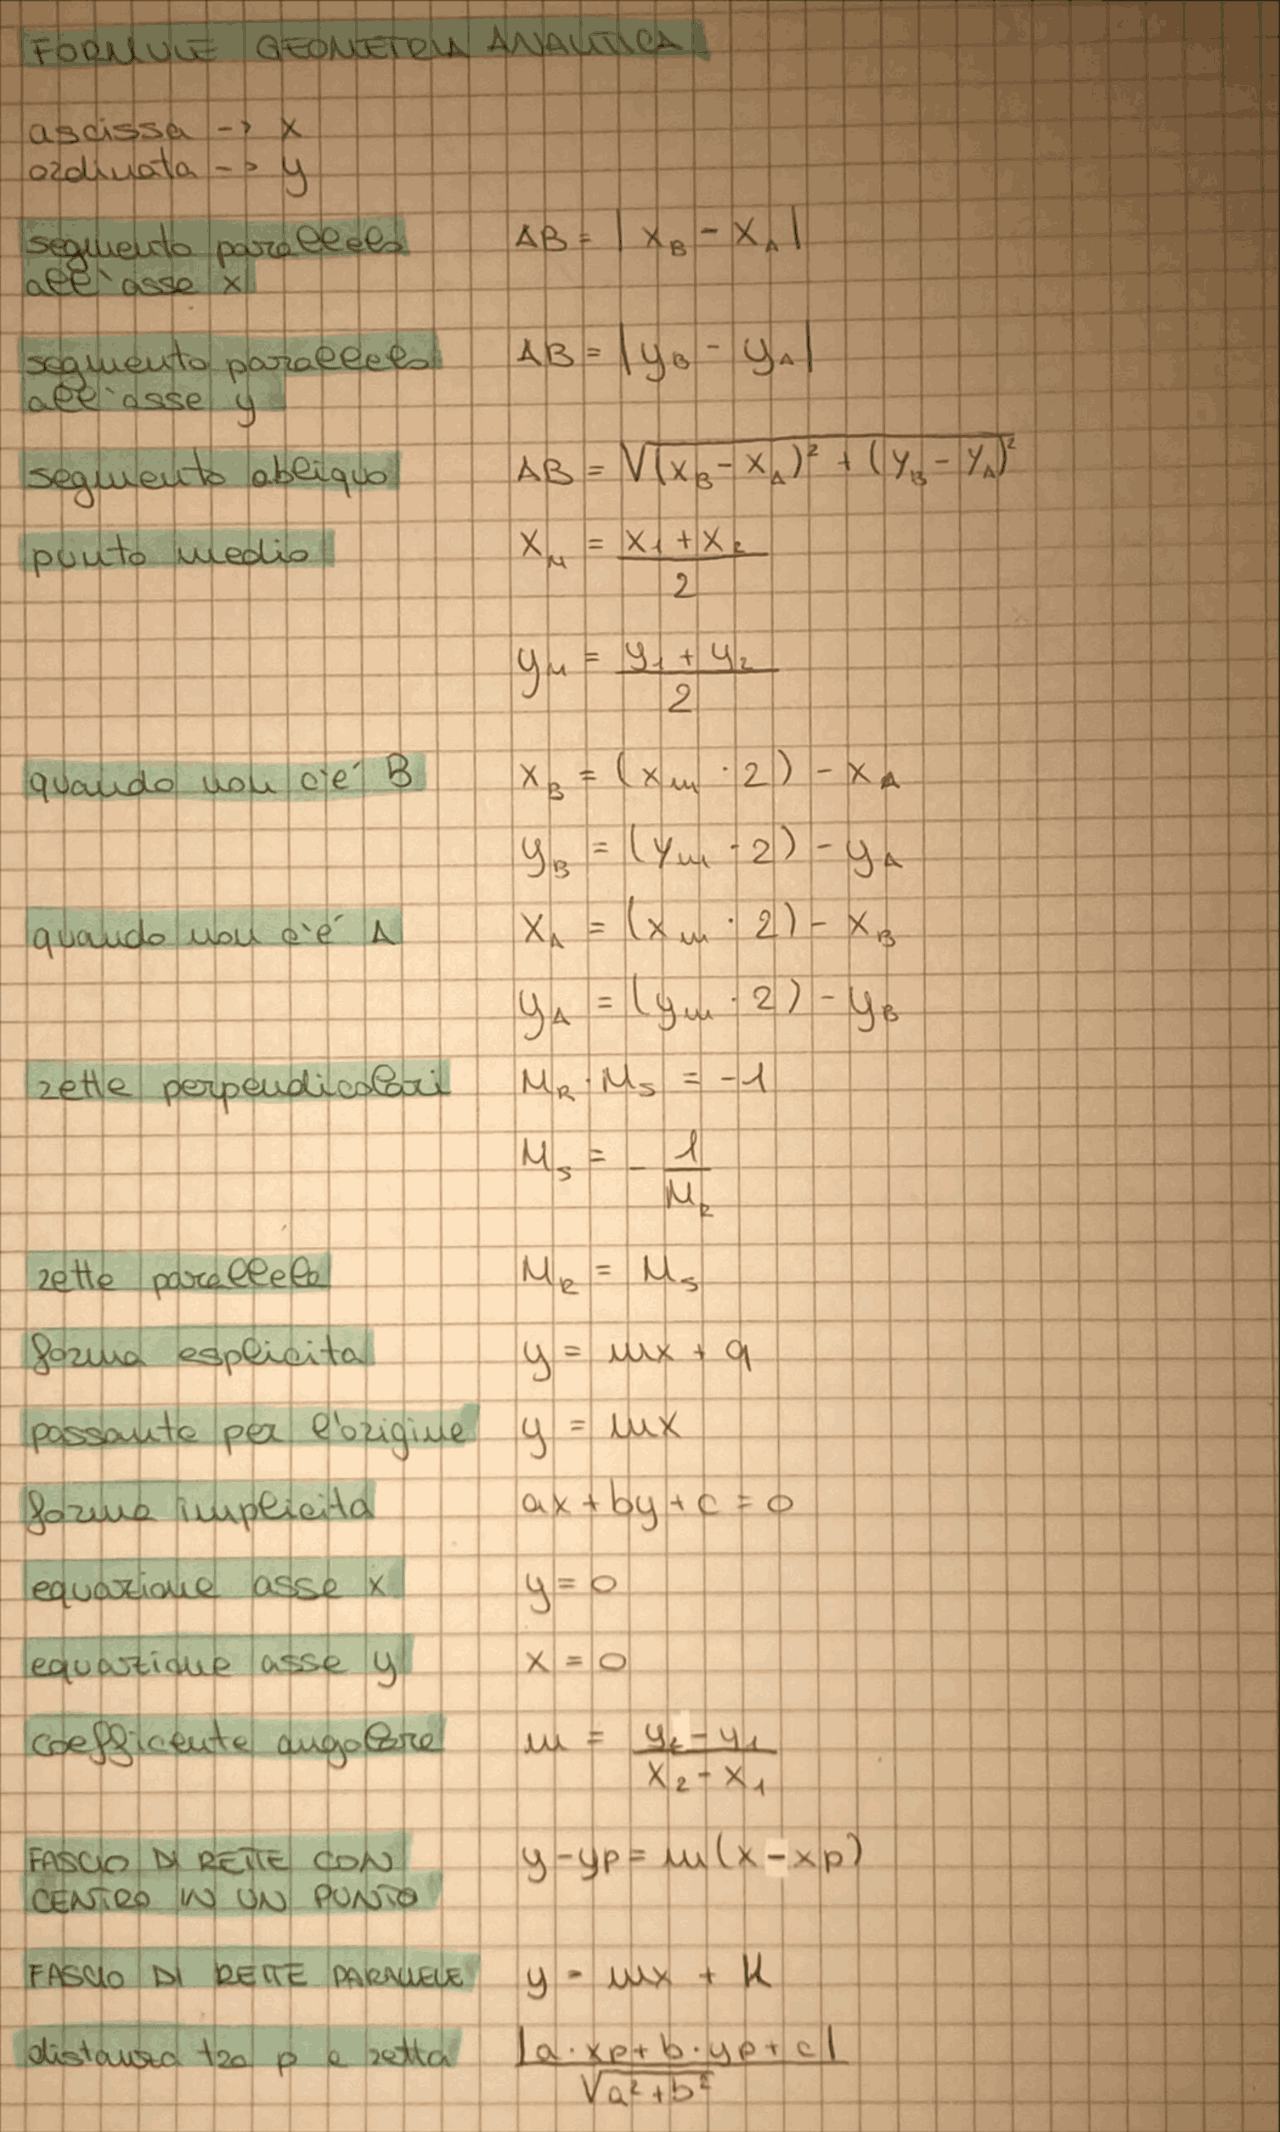 FORMULE GEOMETRIA ANALITICA
ascissa -> x
ordinata -> y
segmento parallelo AB = |x_B - x_A|
all'asse x
segmento parallelo AB = |y_B - y_A|
all'asse y
segmento obliquo AB = √(x_B - x_A)² + (y_B - y_A)²
punto medio x_M = (x_1 + x_2) / 2
y_M = (y_1 + y_2) / 2
quando non c'è B x_B = (x_m · 2) - x_A
y_B = (y_m · 2) - y_A
quando non c'è A x_A = (x_m · 2) - x_B
y_A = (y_m · 2) - y_B
rette perpendicolari M_R · M_S = -1
M_S = - 1 / M_R
rette parallele M_R = M_S
forma esplicita y = mx + q
passante per l'origine y = mx
forma implicita ax + by + c = 0
equazione asse x y = 0
equazione asse y x = 0
coefficente angolare m = (y_2 - y_1) / (x_2 - x_1)
FASCIO DI RETTE CON y - yp = m(x - xp)
CENTRO IN UN PUNTO
FASCIO DI RETTE PARALLELE y = mx + K
distanza tra p e retta |a · xp + b · yp + c| / √a² + b²